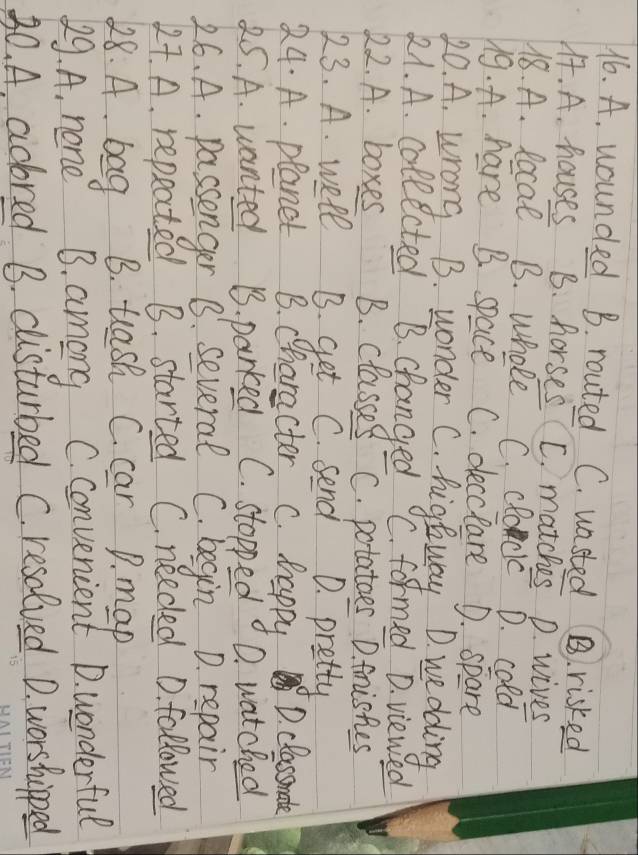 16. A. wounded B. routed C. wasted B. risked
17. A. houses B. horses C. matches D. wives
18. A. local B. whole C. clock D. cold
19. A. hare B. space C. decclare D. spare
20. A. wrong B. wonder C. highway D. wedding
21. A. collected B. changed C. formed D. viewed
22. A. boxes B. classes C. potatoes D. finishes
23. A. well B. get C. send D. pretty
24. A. planet B. character C. happy D. classmate
25. A. wanted B. parked C. stopped D. watched
26. A. passenger B. several C. begin D. repair
27. A. repeated B. started C. needed D. followed
28. A. bag B. trash C. car D. map
29. A. none B. among C. convenient D. wonderful
30. A. adored B. disturbed C. resolved D. worshipped
15
HAI TIEN